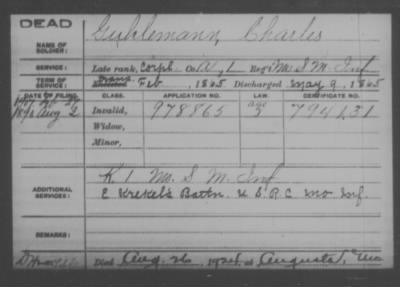 DEAD
NAME OF SOLDIER: Guhlemann, Charles
SERVICE: Late rank, Corpl Co. A, 1 Reg't Mo S M Inf
TERM OF SERVICE: Trans. Feb , 1865 Discharged May 9, 1865
DATE OF FILING. CLASS. APPLICATION NO. LAW. CERTIFICATE NO.
1890 Aug 2 Invalid, 978865 age 794131
Widow,
Minor,
ADDITIONAL SERVICES: K 1 Mo. S M Inf
E Krekel's Battn. U.S.R.C. Mo Inf.
REMARKS:
Died Aug. 26, 1924, at Augusta, Mo